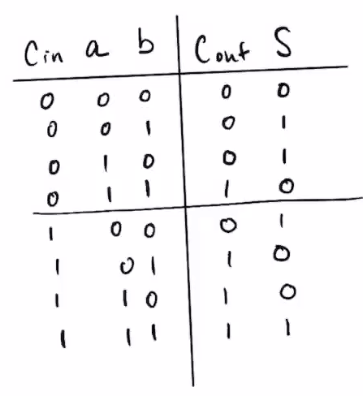 Cin a b Cout S
0 0 0 0 0
0 0 1 0 1
0 1 0 0 1
0 1 1 1 0
1 0 0 0 1
1 0 1 1 0
1 1 0 1 0
1 1 1 1 1